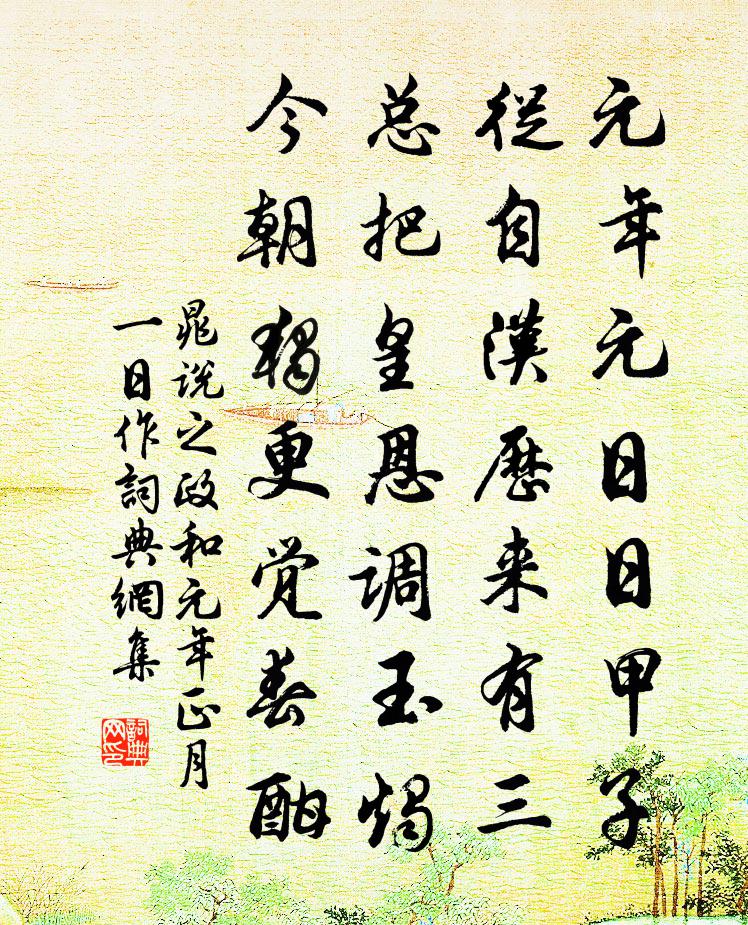 元年元日日甲子
從自漢歷来有三
总把皇恩调玉烛
今朝独更觉春酣
晁说之政和元年正月
一日作詞典網集
詞典网印